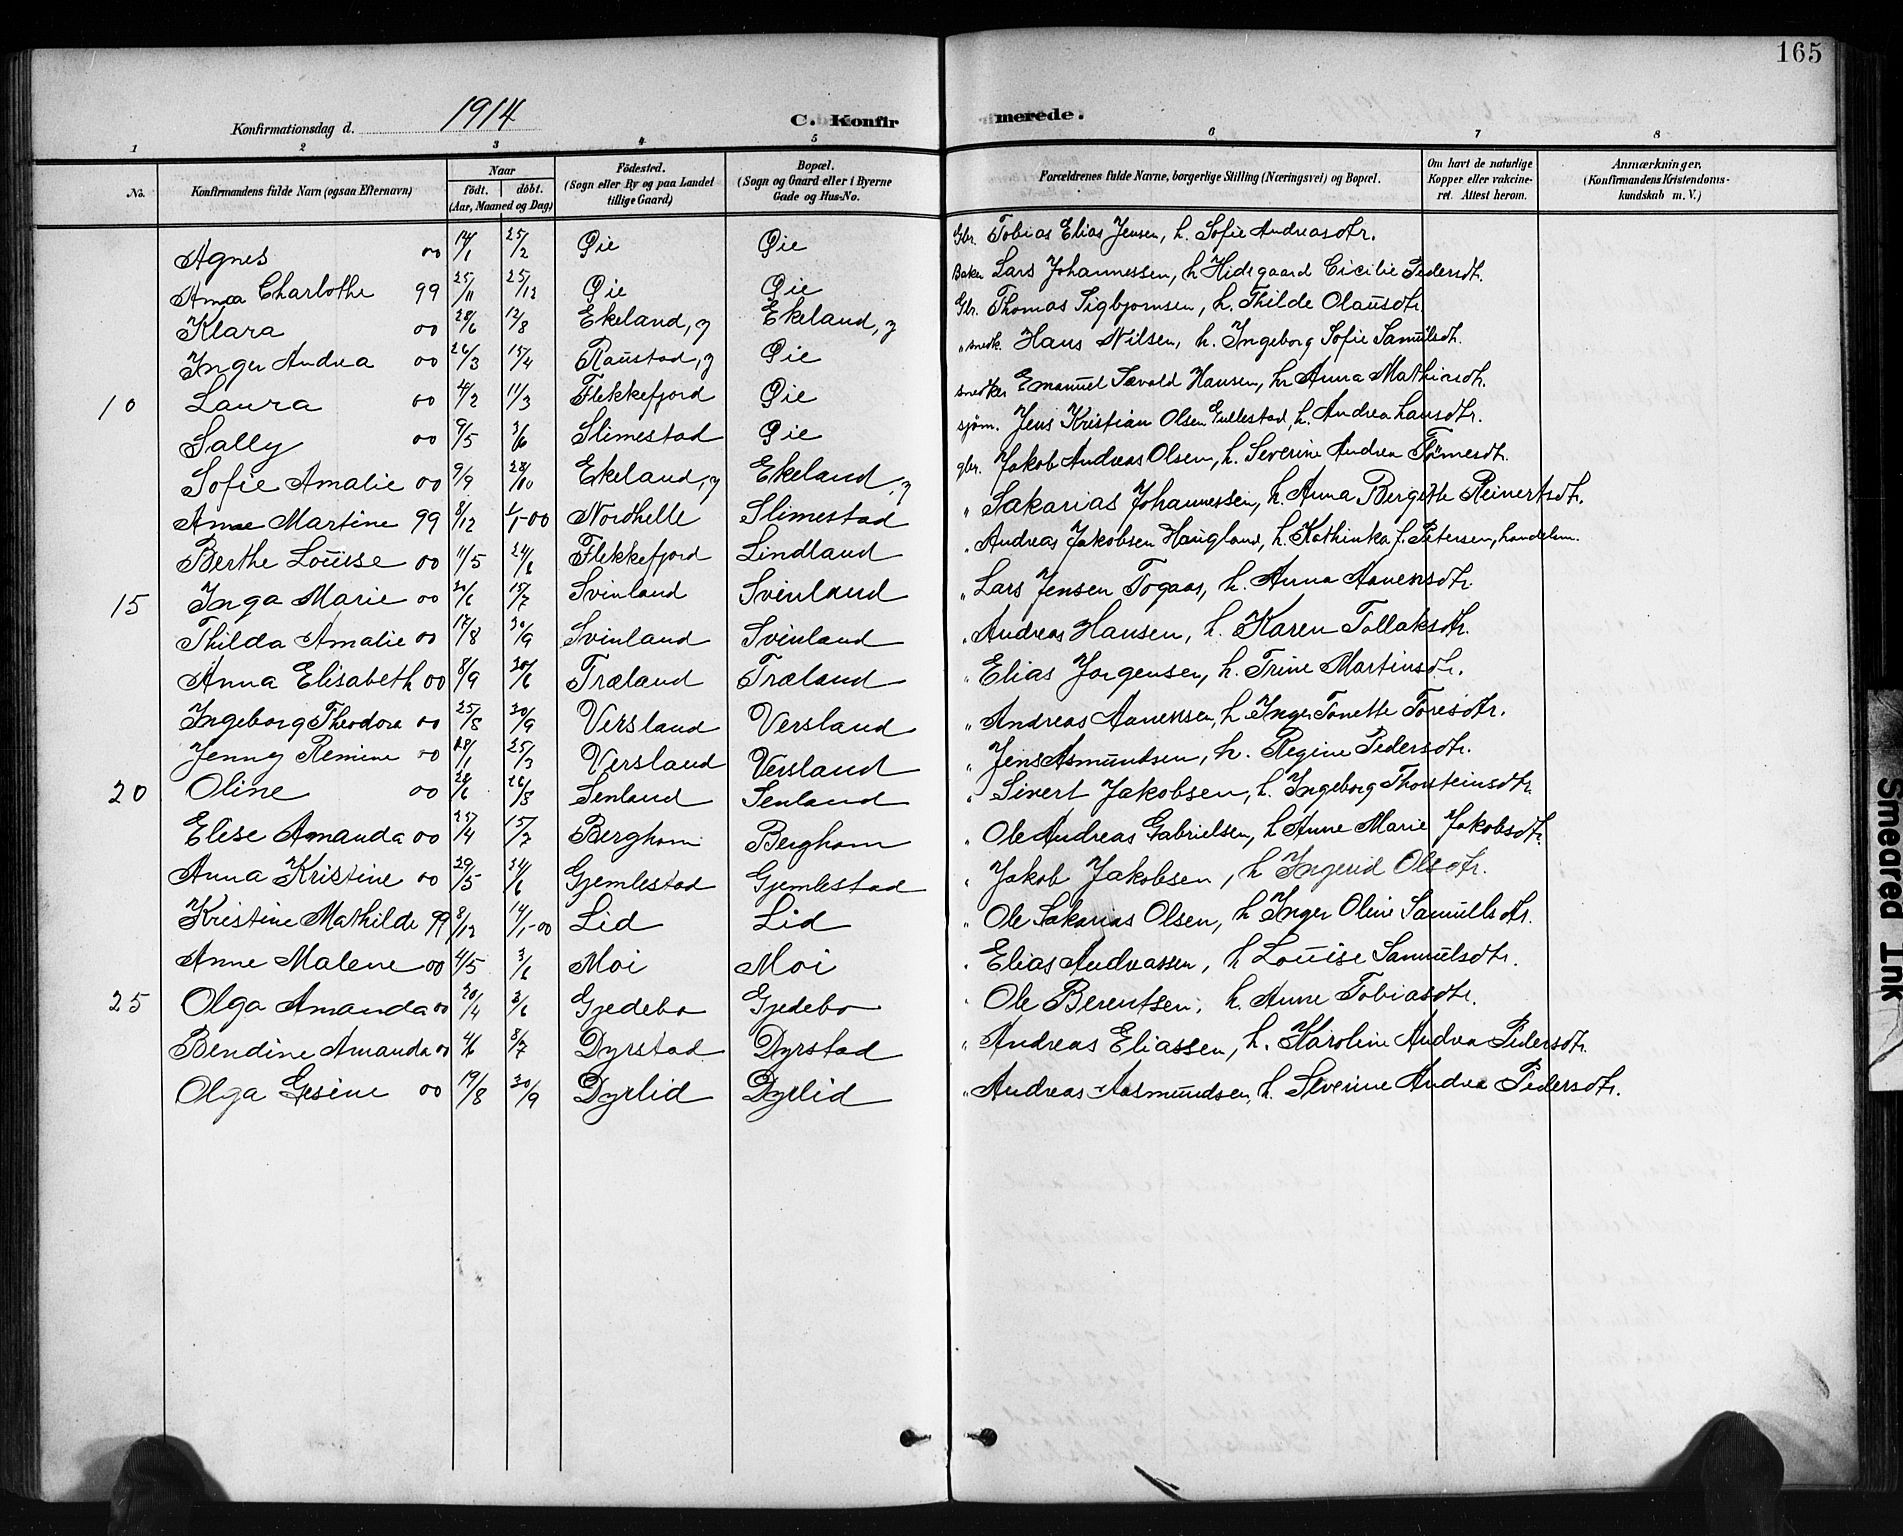 165
Konfirmationsdag d. 1914 C. Konfirmerede.
1 2 3 4 5 6 7 8
No. Konfirmandens fulde Navn (ogsaa Efternavn) Naar födt. döbt. (Aar, Maaned og Dag) Födested. (Sogn eller By og paa Landet tillige Gaard) Bopæl. (Sogn og Gaard eller i Byerne Gade og Hus-No. Forældrenes fulde Navne, borgerlige Stilling (Næringsvei) og Bopæl. Om havt de naturlige Kopper eller vakcineret. Attest herom. Anmærkninger, (Konfirmandens Kristendomskundskab m. V.)
Agnes 00 14/1 25/2 Øie Øie Gbr. Tobias Elias Jensen, h. Sofie Andreasdtr.
Anna Charlothe 99 25/11 25/12 Øie Øie Baker Lars Johannessen, h Hidegaard Cicilie Pedersdtr.
Klara 00 28/6 12/8 Ekeland, y Ekeland, y Gbr. Thomas Sigbjørnsen, h. Thilde Olausdtr.
Inger Andrea 00 26/3 15/4 Raustad, y Øie " snedk. Hans Nilsen, h. Ingeborg Sofie Samuelsdtr.
10 Laura 00 4/2 11/3 Flekkefjord Øie snedker Emanuel Sævald Hansen, h. Anna Mathiasdtr.
Sally 00 9/5 3/6 Slimestad Øie sjøm. Jens Kristian Olsen Gullestad, h. Andrea Larsdtr.
Sofie Amalie 00 9/9 28/10 Ekeland, y Ekeland, y gbr. Jakob Andreas Olsen, h. Severine Andrea Tønnesdtr.
Anne Martine 99 8/12 1/1-00 Nordhelle Slimestad " Sakarias Johannessen, h. Anna Bergitte Reinertsdtr.
Berthe Louise 00 11/5 24/6 Flekkefjord Lindland " Andreas Jakobsen Haugland, h. Kathinka f. Petersen, handelsm.
15 Inga Marie 00 20/6 15/7 Svinland Svinland " Lars Jensen Togaas, h. Anna Aanensdtr.
Thilda Amalie 00 17/8 30/9 Svinland Svinland " Andreas Hansen, h. Karen Tollaksdtr.
Anna Elisabeth 00 8/9 30/6 Træland Træland " Elias Jørgensen, h. Trine Martinsdtr.
Ingeborg Theodora 00 25/8 30/9 Versland Versland " Andreas Aanensen, h Inger Tonette Toresdtr.
Jenny Remine 00 28/1 25/3 Versland Versland " Jens Asmundsen, h. Regine Pedersdtr.
20 Oline 00 28/6 26/8 Senland Senland " Sivert Jakobsen, h. Ingeborg Thorsteinsdtr.
Elise Amanda 00 25/4 15/7 Berghom Berghom " Ole Andreas Gabrielsen, h Anne Marie Jakobsdtr.
Anna Kristine 00 29/5 24/6 Gjemlestad Gjemlestad " Jakob Jakobsen, h Ingerid Olsdtr.
Kristine Mathilde 99 8/12 14/1-00 Lid Lid " Ole Sakarias Olsen, h Inger Oline Samuelsdtr.
Anne Malene 00 4/5 3/6 Moi Moi " Elias Andreassen, h Louise Samuelsdtr.
25 Olga Amanda 00 20/4 3/6 Gjedebo Gjedebo " Ole Berentsen, h. Anne Tobiasdtr.
Bendine Amanda 00 4/6 8/7 Dyrstad Dyrstad " Andreas Eliassen, h. Karoline Andrea Pedersdtr.
Olga Gesine 00 19/8 30/9 Dyrlid Dyrlid " Andreas Aasmundsen, h. Severine Andrea Pedersdtr.
Smeared Ink